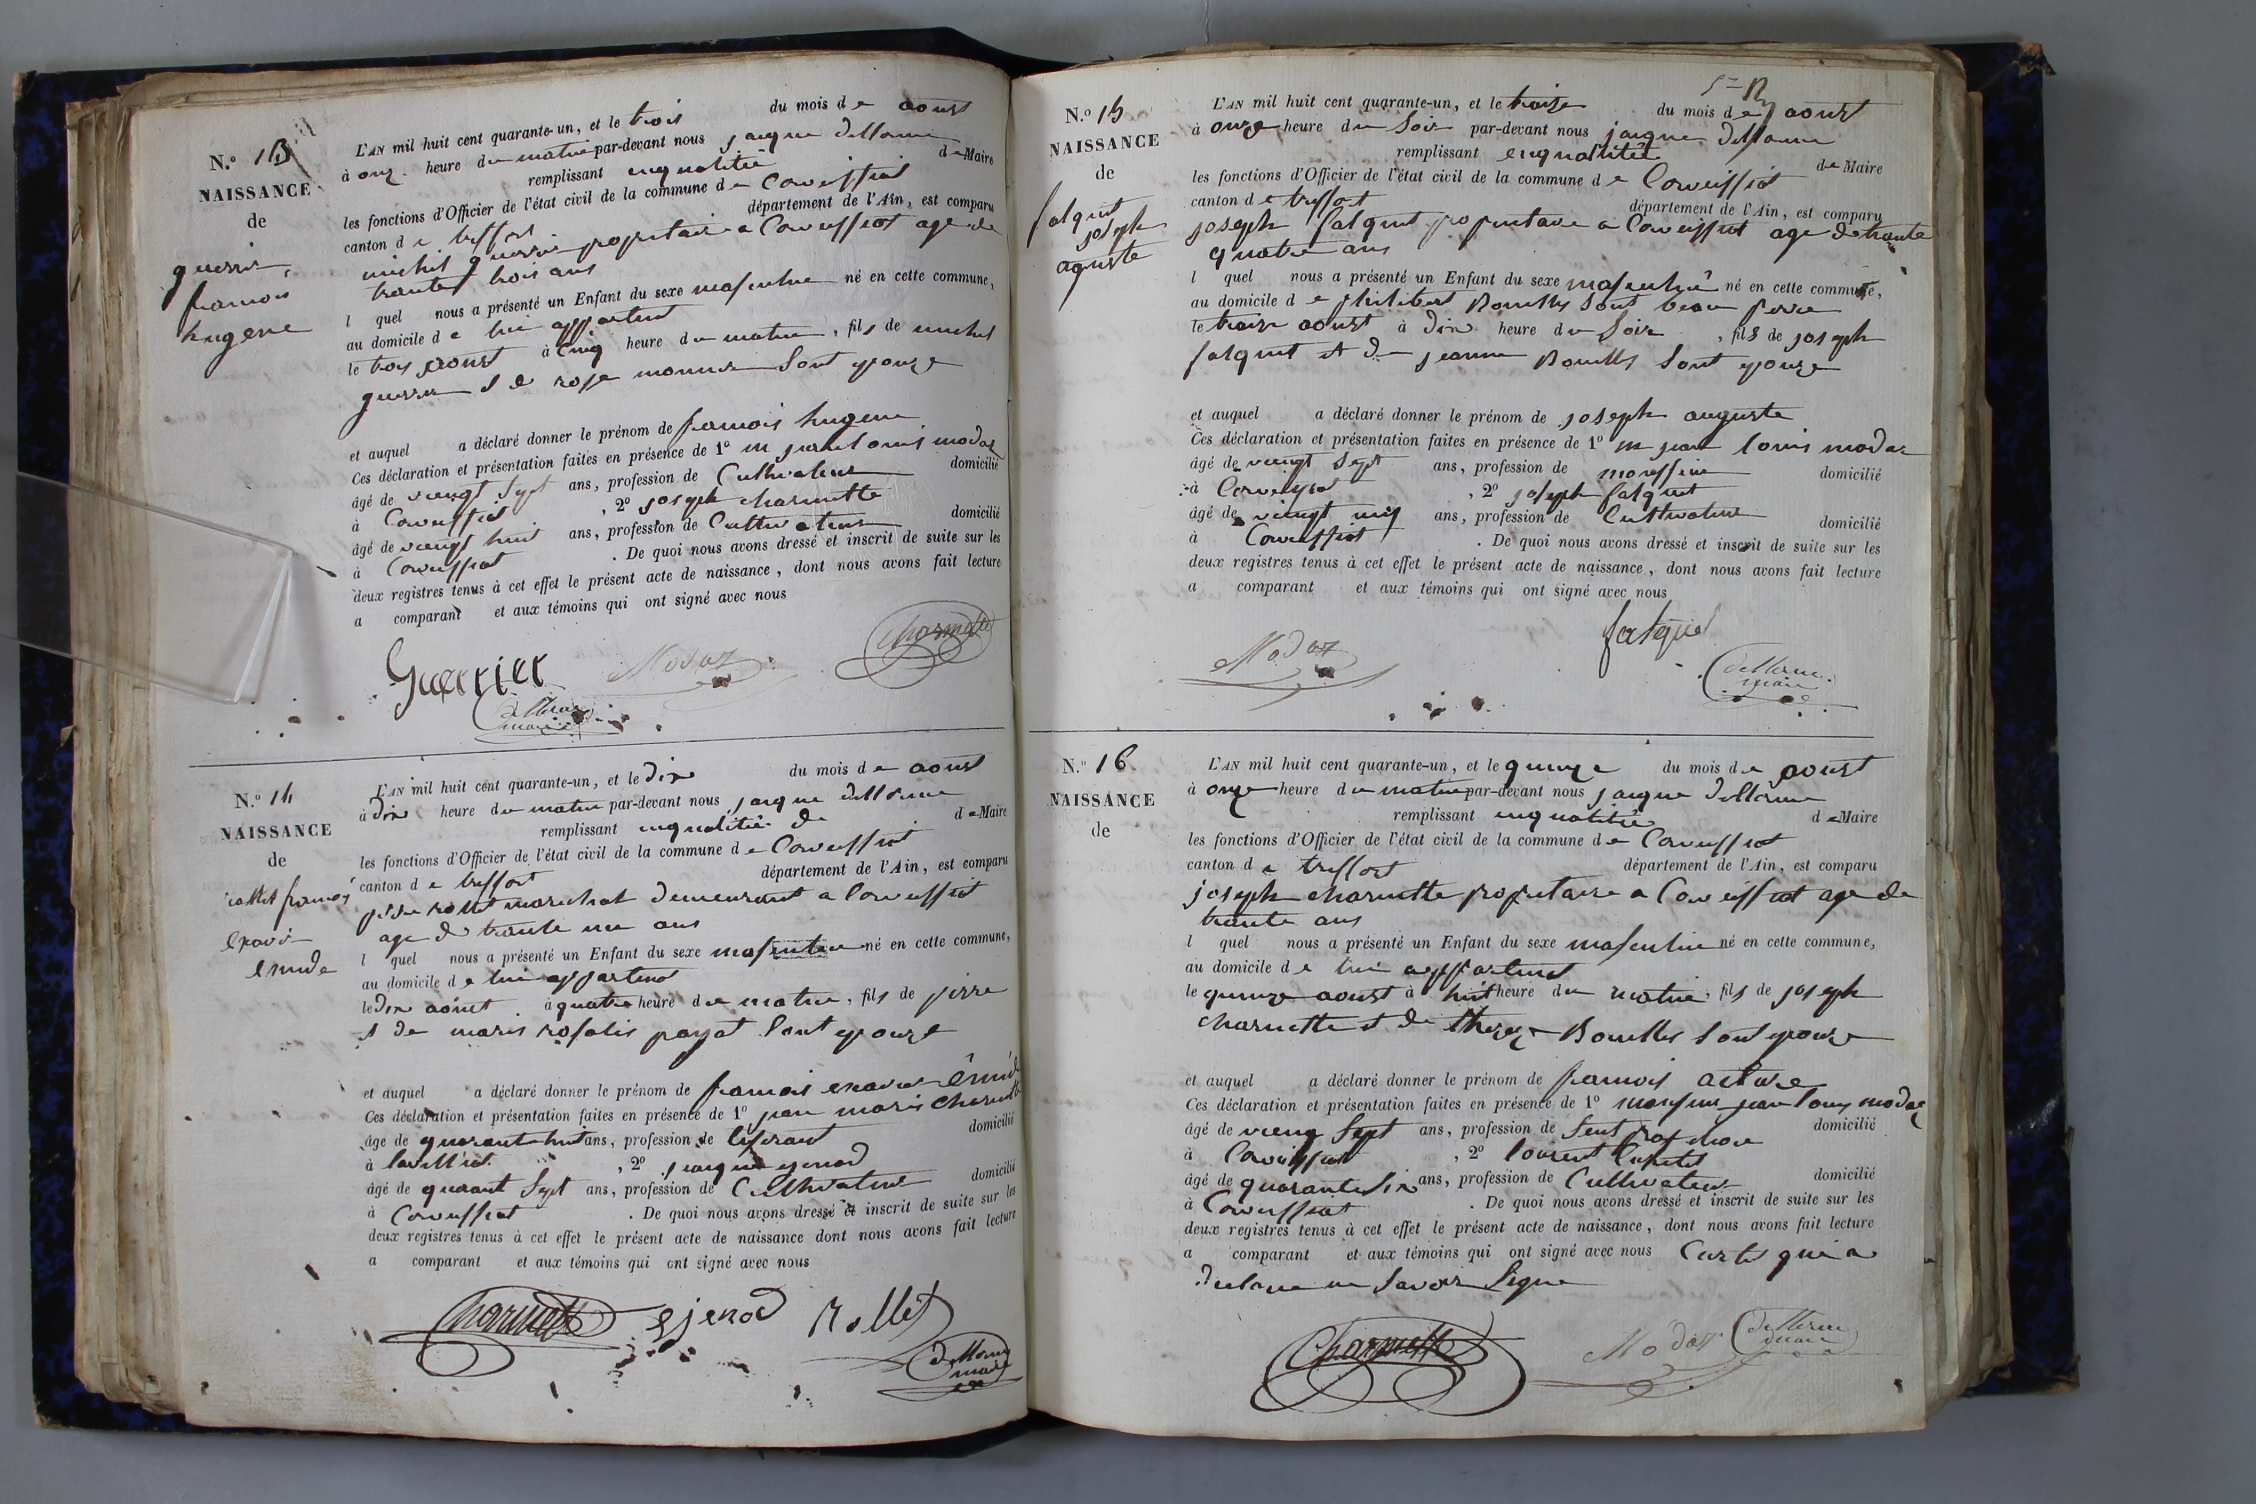 N.º 13
NAISSANCE
de
guerrier
francois
hugene
L'AN mil huit cent quarante-un, et le trois du mois de aoust
à onz heure du matin par-devant nous jacque dellorme
remplissant enqualitié de Maire
les fonctions d'Officier de l'état civil de la commune de Corveissiat
canton de treffort département de l'Ain, est comparu
michel guerrier propritaire a Corveissiat age de
trante trois ans
l quel nous a présenté un Enfant du sexe masculin né en cette commune,
au domicile de lui appartend
le trois aoust à cinq heure du matin, fils de michel
guerrier et de rose monnier sont epouze
et auquel a déclaré donner le prénom de francois hugene
Ces déclaration et présentation faites en présence de 1º m jean louis modaz
âgé de vengt sept ans, profession de Cultivateur domicilié
à Corveissiat, 2º joseph charnette
âgé de vengt huit ans, profession de Cultivateur domicilié
à Corveissiat. De quoi nous avons dressé et inscrit de suite sur les
deux registres tenus à cet effet le présent acte de naissance, dont nous avons fait lecture
a comparant et aux témoins qui ont signé avec nous
Guerrier Modaz Charnette
dellorme
maire
N.º 14
NAISSANCE
de
rollet francois
exavié
emide
L'AN mil huit cent quarante-un, et le dix du mois de aoust
à dix heure du matin par-devant nous jacque dellorme
remplissant enqualitié de de Maire
les fonctions d'Officier de l'état civil de la commune de Corveissiat
canton de treffort département de l'Ain, est comparu
rollet marichal demeurant a Corveissiat
age de trante un ans
l quel nous a présenté un Enfant du sexe masculin né en cette commune,
au domicile de lui appartend
le dix aoust à quatre heure du matin, fils de pierre
et de marie rosalis payat sont epouze
et auquel a déclaré donner le prénom de francois exavier
Ces déclaration et présentation faites en présence de 1º jean marie charnette
âgé de quarant huit ans, profession de domicilié
à, 2º jacque genod
âgé de quarant sept ans, profession de Cultivateur domicilié
à Corveissiat. De quoi nous avons dressé et inscrit de suite sur les
deux registres tenus à cet effet le présent acte de naissance dont nous avons fait lecture
a comparant et aux témoins qui ont signé avec nous
Charnette gjenod Rollet
dellorme
maire
N.º 15
NAISSANCE
de
falquet
joseph
aguste
L'AN mil huit cent quarante-un, et le traise du mois de aoust
à onze heure du soir par-devant nous jacque dellorme
remplissant enqualitié de Maire
les fonctions d'Officier de l'état civil de la commune de Corveissiat
canton de treffort département de l'Ain, est comparu
joseph falquet propritaire a Corveissiat age de trante
quatre ans
l quel nous a présenté un Enfant du sexe masculin né en cette commune,
au domicile de philibert Bouilles sont beau perre
le traise aoust à dix heure du soir, fils de joseph
falquet et de jeanne Bouilles sont epouze
et auquel a déclaré donner le prénom de joseph auguste
Ces déclaration et présentation faites en présence de 1º m jean louis modaz
âgé de vengt sept ans, profession de domicilié
à Corveissiat, 2º joseph falquet
âgé de vengt ans, profession de Cultivateur domicilié
à Corveissiat. De quoi nous avons dressé et inscrit de suite sur les
deux registres tenus à cet effet le présent acte de naissance, dont nous avons fait lecture
a comparant et aux témoins qui ont signé avec nous
Modaz falquet
dellorme
maire
N.º 16
NAISSANCE
de
L'AN mil huit cent quarante-un, et le quinze du mois de aoust
à onze heure du matin par-devant nous jacque dellorme
remplissant enqualitié de Maire
les fonctions d'Officier de l'état civil de la commune de Corveissiat
canton de treffort département de l'Ain, est comparu
joseph charnette propritaire a Corveissiat age de
trante ans
l quel nous a présenté un Enfant du sexe masculin né en cette commune,
au domicile de lui appartend
le quinze aoust à huit heure du matin, fils de joseph
charnette et de Bouilles sont epouze
et auquel a déclaré donner le prénom de francois
Ces déclaration et présentation faites en présence de 1º monsieur jean louis modaz
âgé de vieng sept ans, profession de domicilié
à Corveissiat, 2º lourent
âgé de quarante six ans, profession de Cultivateur domicilié
à Corveissiat. De quoi nous avons dressé et inscrit de suite sur les
deux registres tenus à cet effet le présent acte de naissance, dont nous avons fait lecture
a comparant et aux témoins qui ont signé avec nous qui a
declare ne savoir signe
Charnette Modaz dellorme
maire